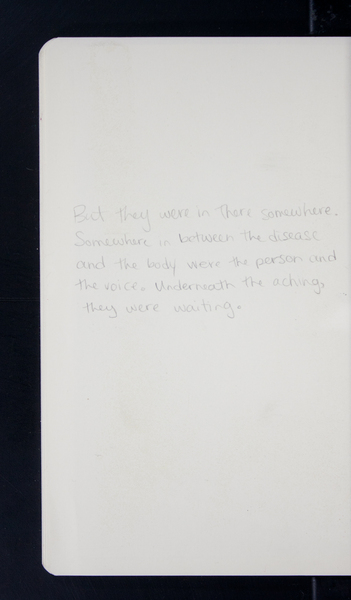 But they were in there somewhere.
Somewhere in between the disease
and the body were the person and
the voice. Underneath the aching,
they were waiting.